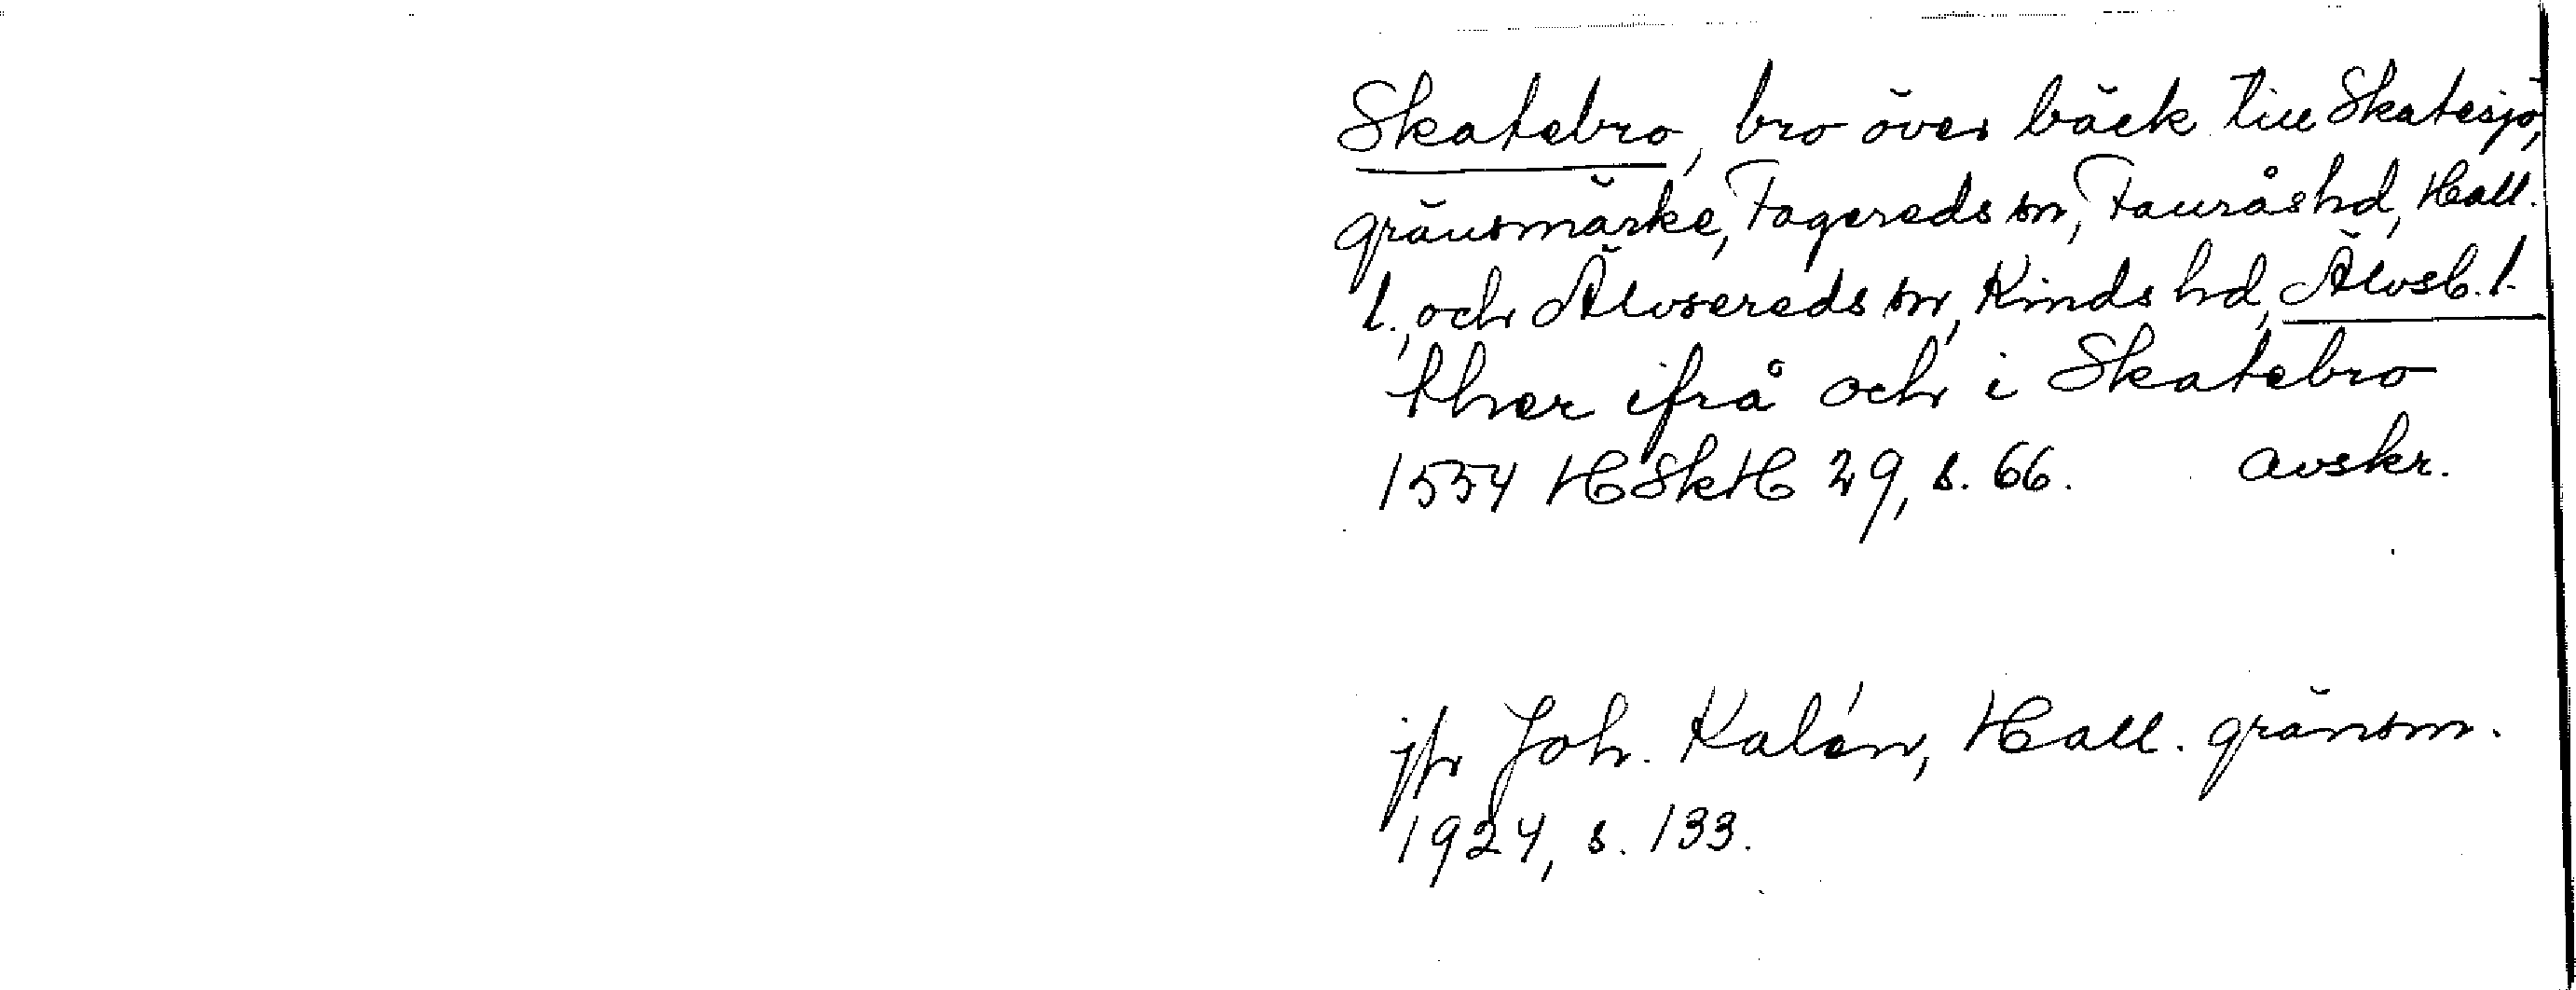 Skatebro, bro över bäck till Skatesjö,
gränsmärke, Fagereds sn, Faurås hd, Hall.
l., och Älvsereds sn, Kinds hd, Älvsb. l.
ther ifrå och i Skatebro
1554 HSkH 29, s. 66. avskr.
jfr Joh. Kalén, Hall. gränsm.
1924, s. 133.